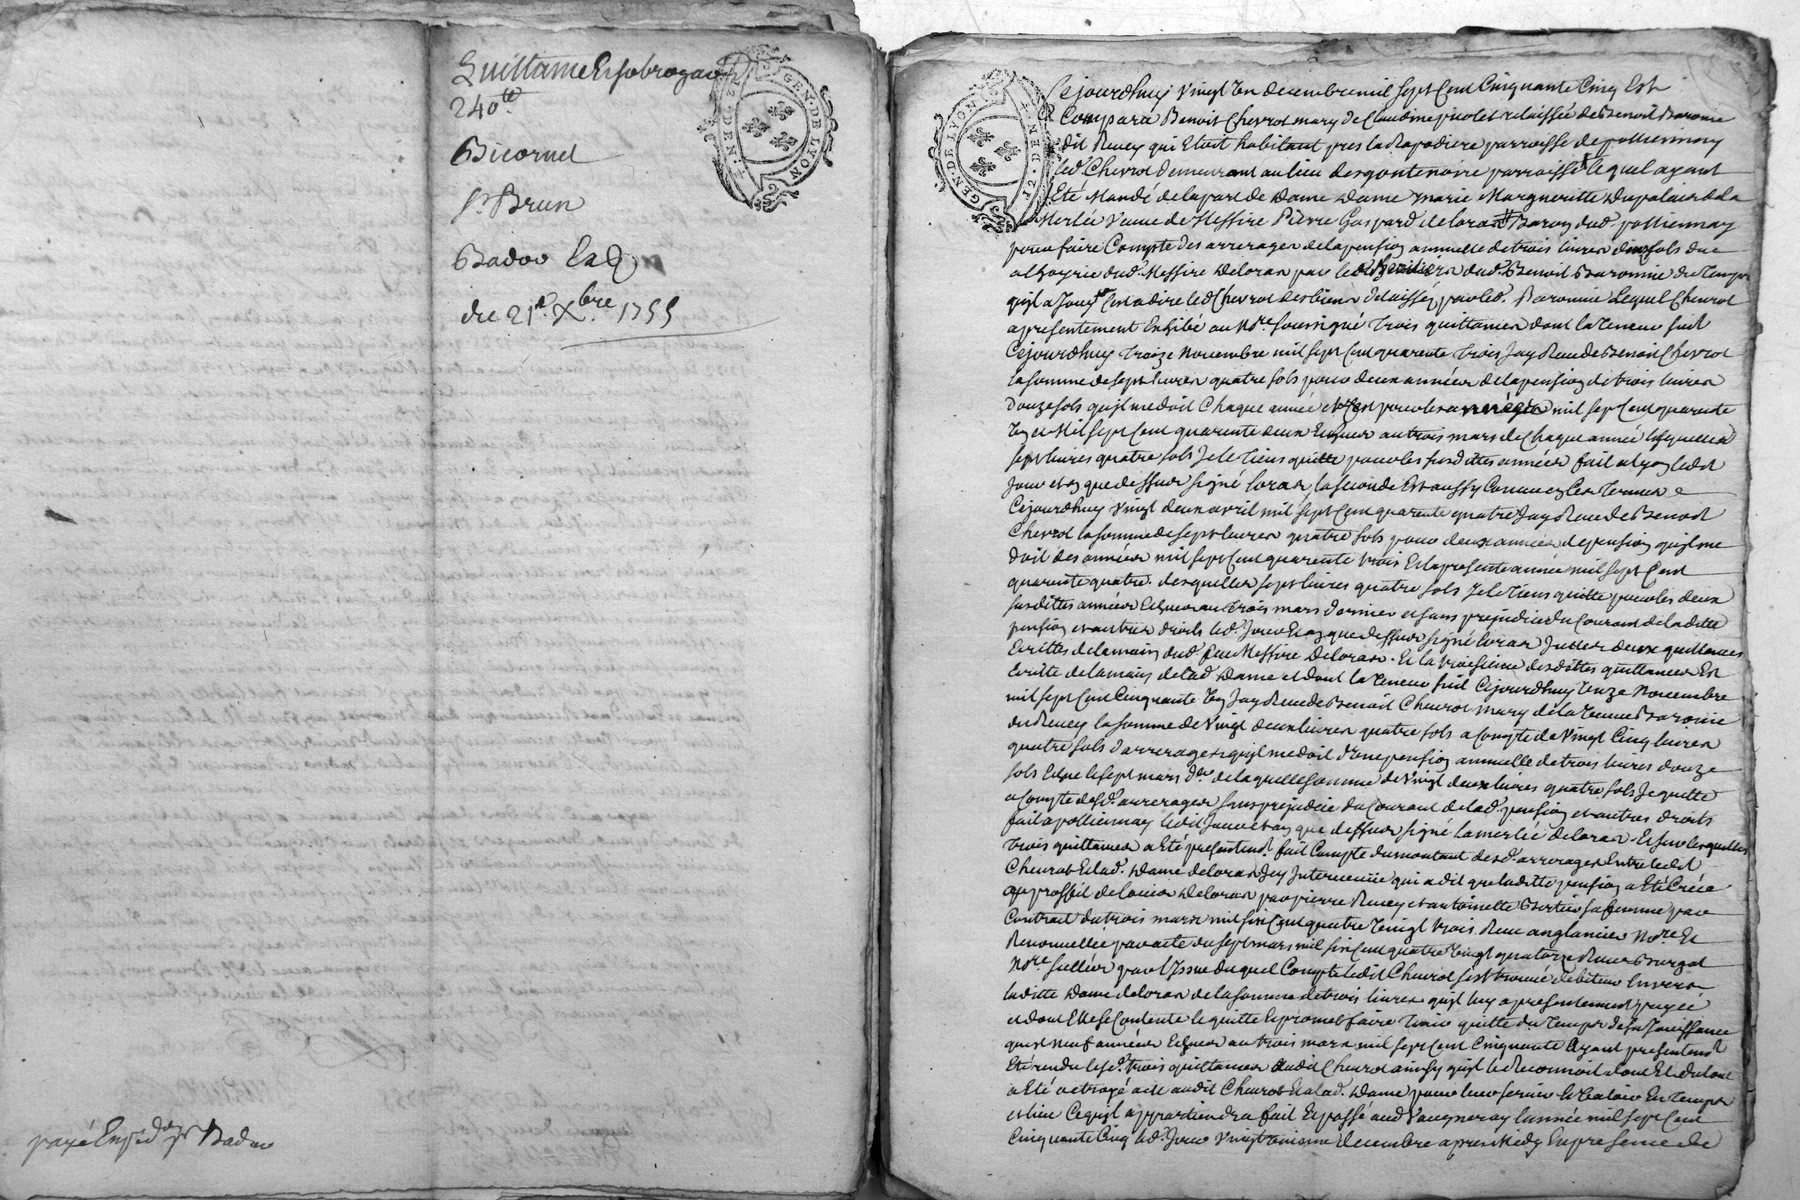 Quittance Et subrogaon
240tt
Bicornet
Sr Brun
Badoo
du 21e Xbre 1755
payé
GEN·DE LYON
12·DEN·
GEN·DE LYON
12·DEN·
Cejourdhuy Vingt Un decembre mil sept Cent Cinquante Cinq Est
Comparu Benoit Chevrot mary de Claudine relaissée de Benoit Baronne
dit Revey qui Etoit habitant pres la Rapodiere parroisse de pollionnay
led. Chevrot demeurant au lieu parroisse lequel ayant
Eté Mandé de la part de Dame Dame Marie Margueritte Dupalais de la
Merlée Veuve de Messire Pierre Gaspard de loras Baron dud. pollionnay
pour faire Compte des arrerages de la pension annuelle de trois livres douze sols due
a led. Messire de loras par led. dud. Benoit Baronne du temps
quil a Jouy Cest a dire led. Chevrot des biens delaissés par led. Baronne Lequel Chevrot
a presentement Exhibé au Nore soussigné trois quittances dont la teneur suit
Cejourdhuy treize Novembre mil sept Cent quarente trois Jay Reçu de Benoit Chevrot
la somme de sept livres quatre sols pour deux années de la pension de trois livres
douze sols quil me doit Chaque année pour les années mil sept Cent quarente
Un et Mil sept Cent quarente deux Echues au trois mars de Chaque année lesquelles
sept livres quatre sols Je le tiens quitte pour les susdittes années fait a lyon ledit
Jour et an que dessus signé loras, la seconde Est aussy Conçue en Ces termes
Cejourdhuy Vingt deux avril mil sept Cent quarente quatre Jay Reçu de Benoit
Chevrot la somme de sept livres quatre sols pour deux années de pension quil me
doit des années mil sept Cent quarente trois Et la presente année mil sept Cent
quarente quatre. desquelles sept livres quatre sols Je le tiens quitte pour les deux
susdittes années Echues au trois mars dernier et sans prejudice du Courant de ladette
pension et autres droits led. Jour Et an que dessus signé loras deux quittances
Ecrittes de la main dud. feu Messire de loras. Et la troisieme desdittes quittances Est
Ecritte de la main de lad. Dame et dont la teneur suit Cejourdhuy onze Novembre
mil sept Cent Cinquante Un Jay Reçu de Benoit Chevrot mary de la Veuve Baronne
du Revey la somme de Vingt deux livres quatre sols a Compte de Vingt Cinq livres
quatre sols d'arrerages quil me doit d'une pension annuelle de trois livres douze
sols Echue le sept mars de laquelle somme de Vingt deux livres quatre sols Je quitte
a Compte desd. arrerages sans prejudice du Courant de lad. pension et autres droits
fait a pollionnay ledit Jour et an que dessus signé lamerlée de loras. Et sur lesquelles
trois quittances a Eté presentemt. fait Compte du montant desd. arrerages Entre ledit
Chevrot Et lad. Dame de loras Icy Intervenüe qui a dit que laditte pension a Eté Créée
au proffit de de loras par pierre Revey et antoinette Bertier sa femme par
Contrat du trois mars mil six Cent quatre Vingt trois Reçu anglancier Nore Et
Renouvellée par acte du sept mars mil six Cent quatre Vingt quatorze Reçu
Nore par l'Issue duquel Compte ledit Chevrot s'est trouvé debiteur Envers
laditte Dame de loras de la somme de trois livres quil luy a presentement payée
et dont Elle se Contente le quitte Et promet faire tenir quitte du temps de sa Jouissance
neuf années Echues au trois mars mil sept Cent Cinquante Ayant presentemt.
Eté rendu lesd. trois quittances audit Chevrot ainsy quil le Reconnoit dont Et du tout
a Eté octroyé acte audit Chevrot Et a lad. Dame pour leur servir Et Valoir En temps
et lieu Ce quil appartiendra fait Et passé aud. Vaugneray l'année mil sept Cent
Cinquante Cinq led. Jour Vingt unieme decembre apres Midy En presence de